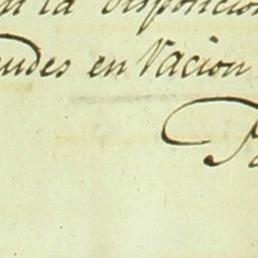 la disposicion
udes en Nacion